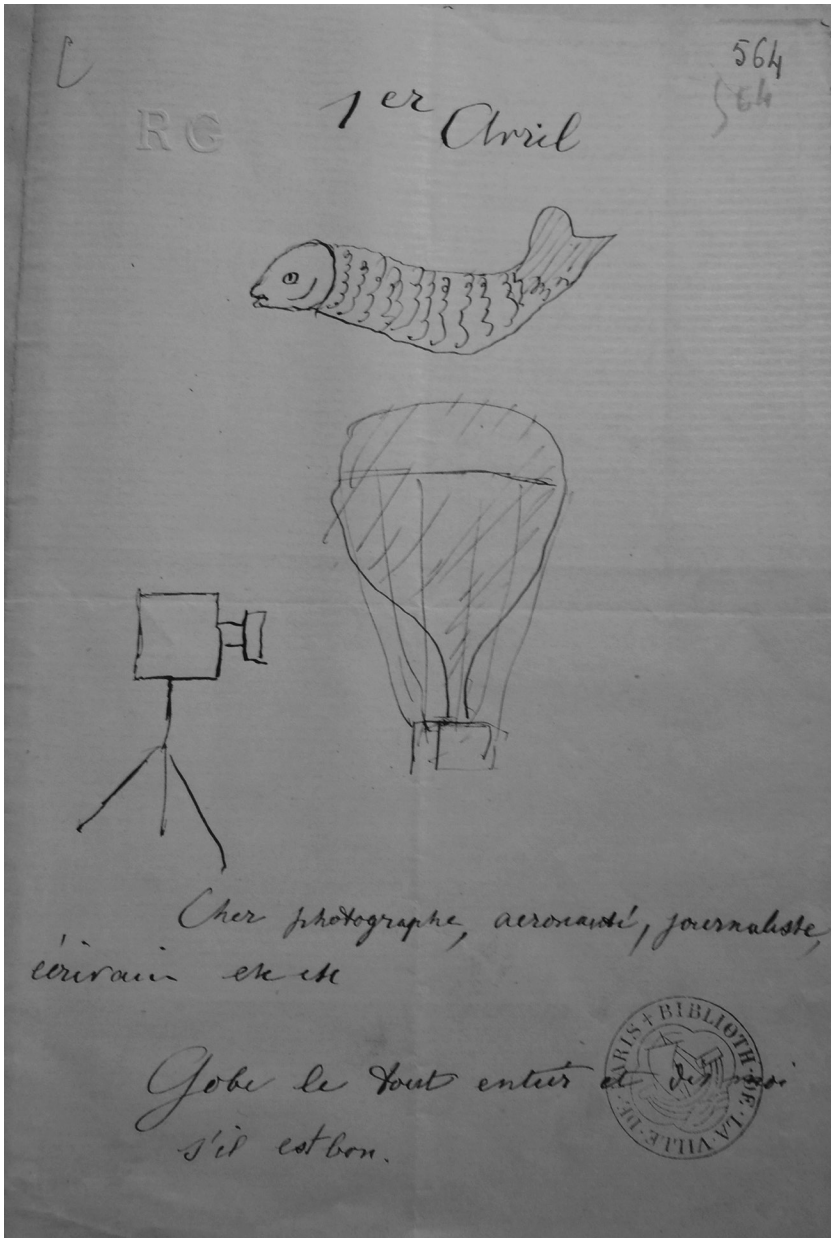 564
564
RG
1er Avril
Cher photographe, aeronaute, journaliste,
écrivain etc etc
Gobe le tout entier et dis moi
s'il est bon.
BIBLIOTH · DE · LA · VILLE · DE · PARIS